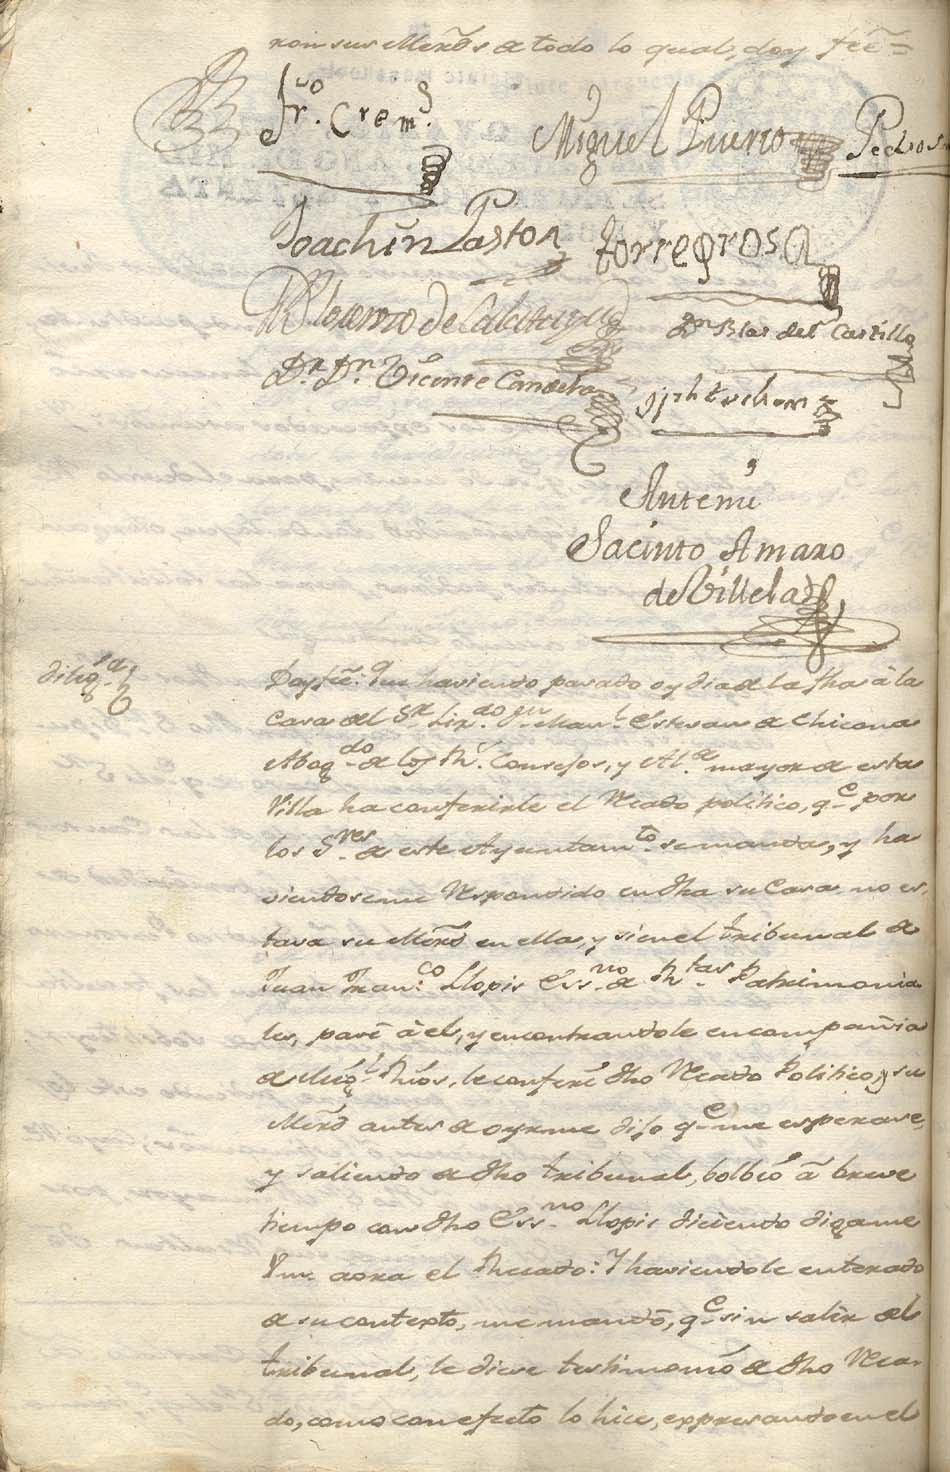 ron sus Merds. de todo lo qual, doy feè =
Frco. Crems.
Miguel Puerto
Pedro
Joachin Pastor
torregrosa
Lorenzo de Calatayud
Dn Blas del Castillo
Dr. Dn. Vicente Candela
Antemi
Jacinto Amaro
de Villela
diliga.
Doy feè: Que haviendo pasado oy dia de la fha à la
Casa del Sr. Lizdo. Dn. Manl. Estevan de Chicana
Abogdo. de los Rs. Consejos, y Alde. mayor de esta
Villa ha conferirle el Recado politico, qe. por
los Sres. de este Ayuntamto. se manda, y ha
viendoseme Respondido en dha su Casa no es
tava su Merd en ella, y si en el tribunal de
Juan Franco. Llopis Essno. de Rtas. Patrimonia
les, pasè à el, y encontrandole en compañia
de Migl. Rios, le conferì dho Recado Politico, y su
Merd antes de oyrme dijo qe. me esperase,
y saliendo de dho tribunal, bolbiò à breve
tiempo con dho Essno. Llopis diciendo digame
Vm. aora el Recado: Y haviendole enterado
de su contexto, me mandò, qe. sin salir del
tribunal, le diese testimonio de dho Reca-
do, como con efecto lo hice, expresando en el